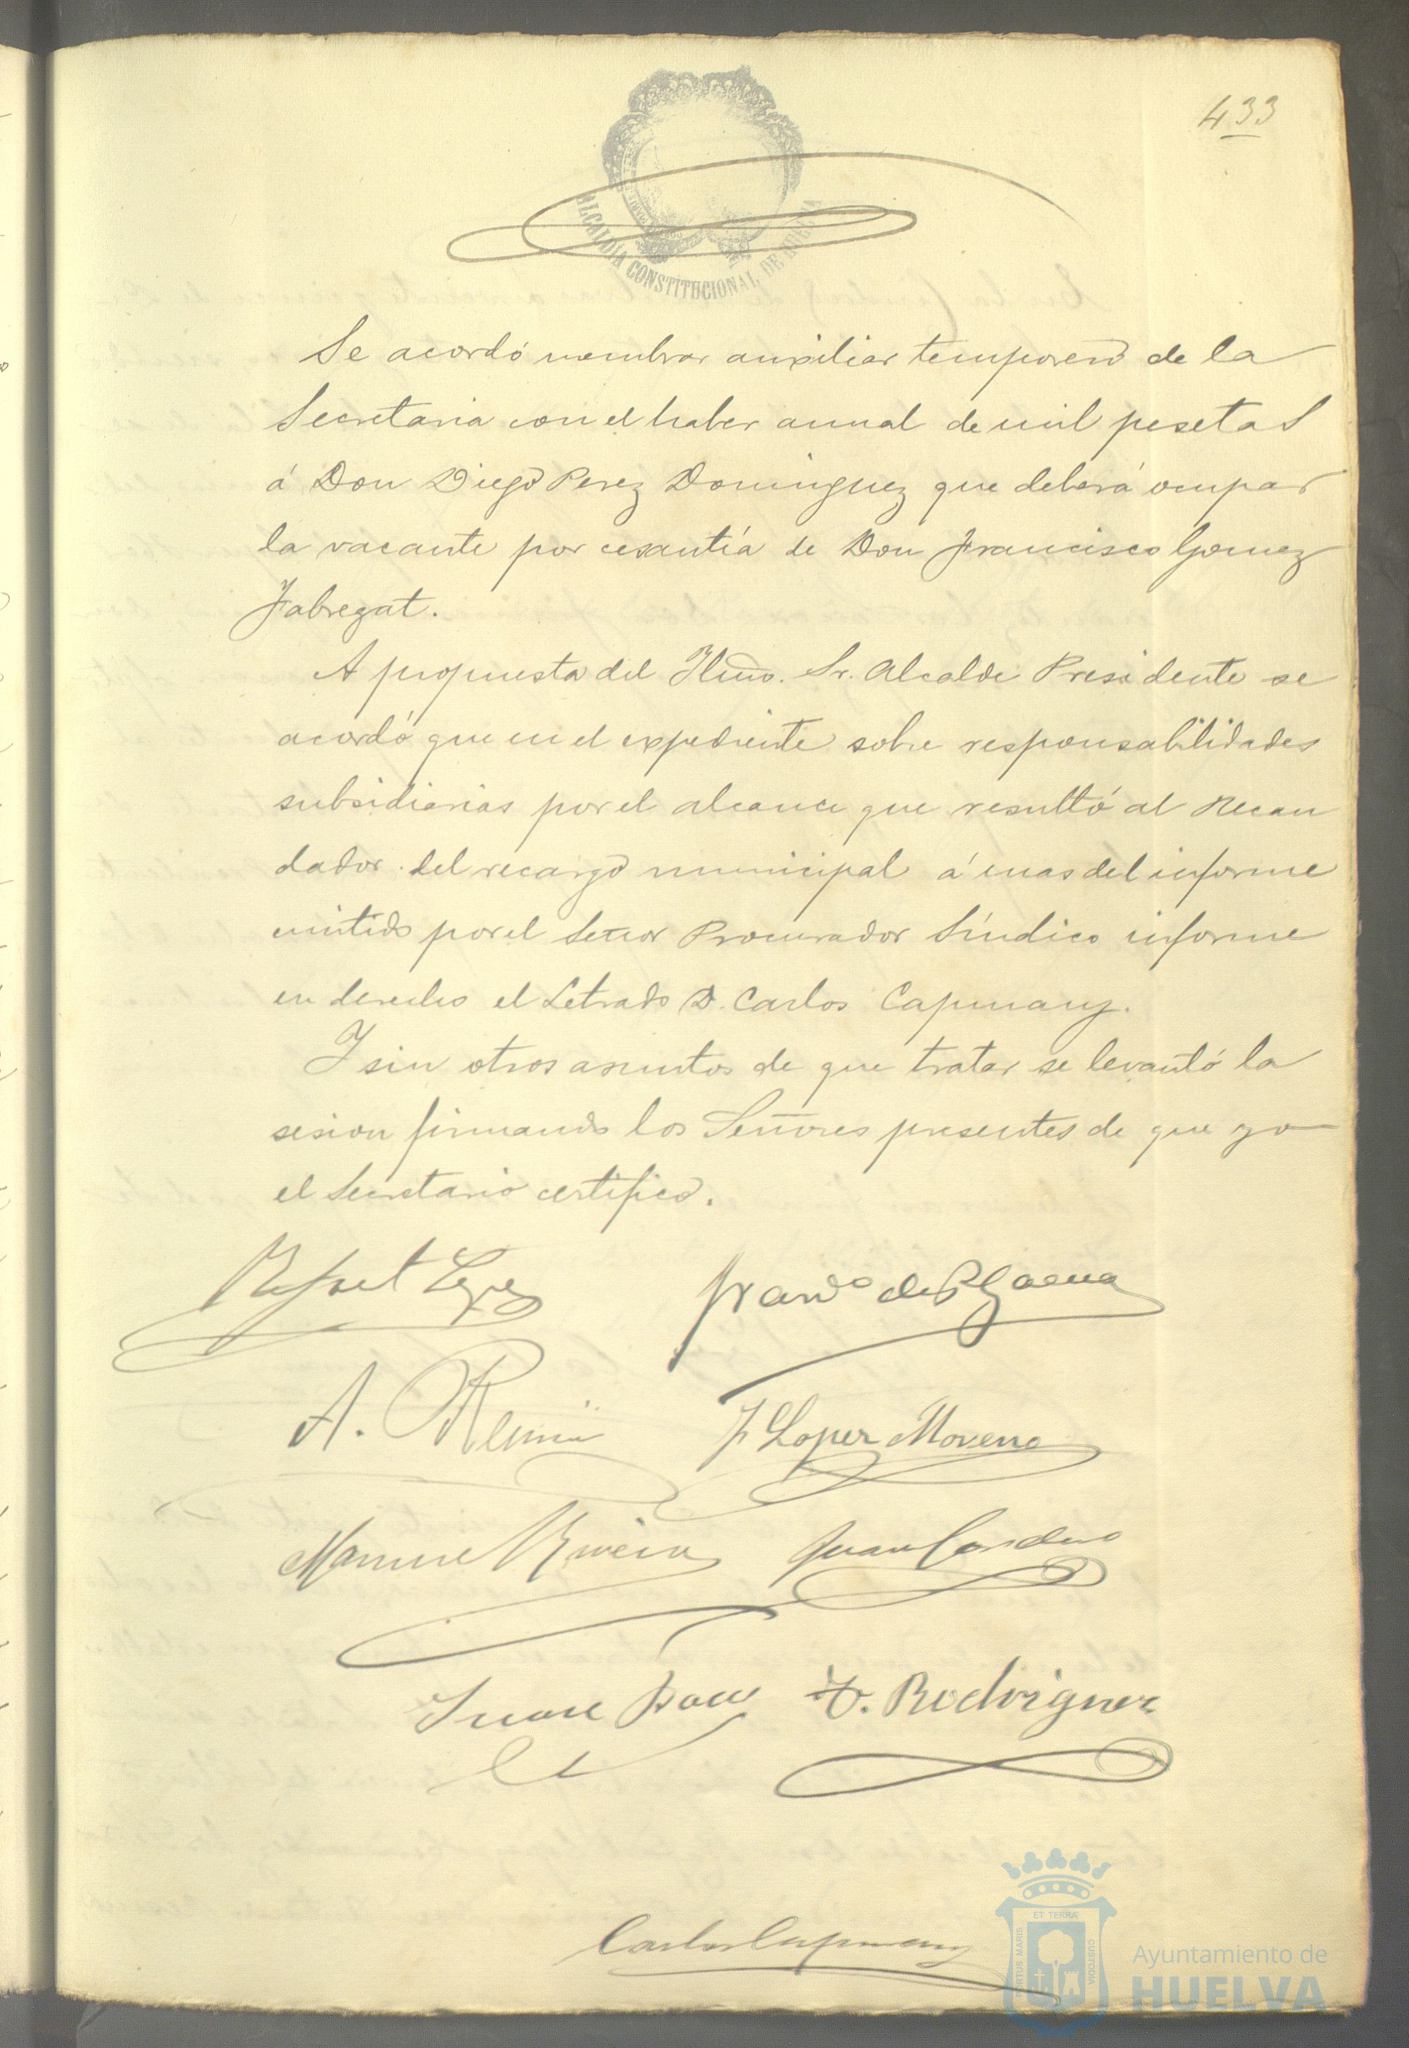 433
ALCALDÍA CONSTITUCIONAL DE HUELVA
Se acordó nombrar auxiliar temporero de la
Secretaria con el haber anual de mil pesetas
á Don Diego Perez Dominguez que deberá ocupar
la vacante por cesantía de Don Francisco Gomez
Fabregat.
A propuesta del Ylmo. Sr. Alcalde Presidente se
acordó que en el expediente sobre responsabilidades
subsidiarias por el alcance que resultó al Recau
dador del recargo municipal á mas del informe
emitido por el Señor Procurador Síndico informe
en derecho el Letrado D. Carlos Capmany.
Y sin otros asuntos de que tratar se levantó la
sesion firmando los Señores presentes de que yo
el Secretario certifico.
Rafael Lopez
Franco de P
A.
F Lopez Moreno
Manuel
Juan Cordero
F. Rodriguez
Carlos Capmany
PORTUS MARIS ET TERRÆ CUSTODIA
Ayuntamiento de
HUELVA